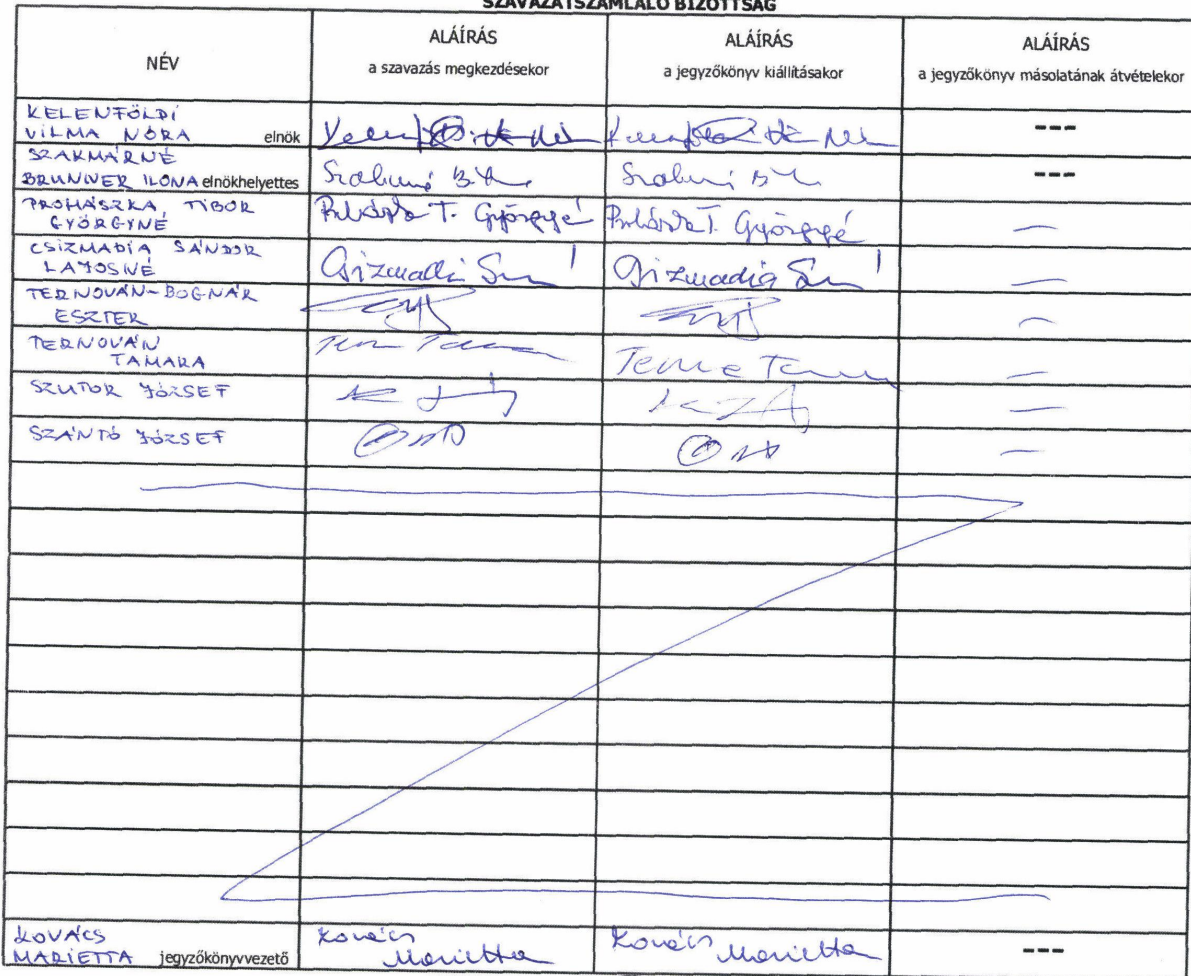 SZAVAZATSZÁMLÁLÓ BIZOTTSÁG
NÉV
ALÁÍRÁS
a szavazás megkezdésekor
ALÁÍRÁS
a jegyzőkönyv kiállításakor
ALÁÍRÁS
a jegyzőkönyv másolatának átvételekor
KELENFÖLDI
VILMA NÓRA elnök
---
SZAKMÁRNÉ
BRUNNER ILONA elnökhelyettes
---
PROHÁSZKA TIBOR
GYÖRGYNÉ
T. Györgyné
T. Györgyné
CSIZMADIA SÁNDOR
LAJOSNÉ
Csizmadia
Csizmadia
TERNOVÁN-BOGNÁR
ESZTER
TERNOVÁN
TAMARA
SZUTOR JÓZSEF
SZÁNTÓ JÓZSEF
KOVÁCS
MARIETTA jegyzőkönyvvezető
Kovács
Marietta
Kovács
Marietta
---